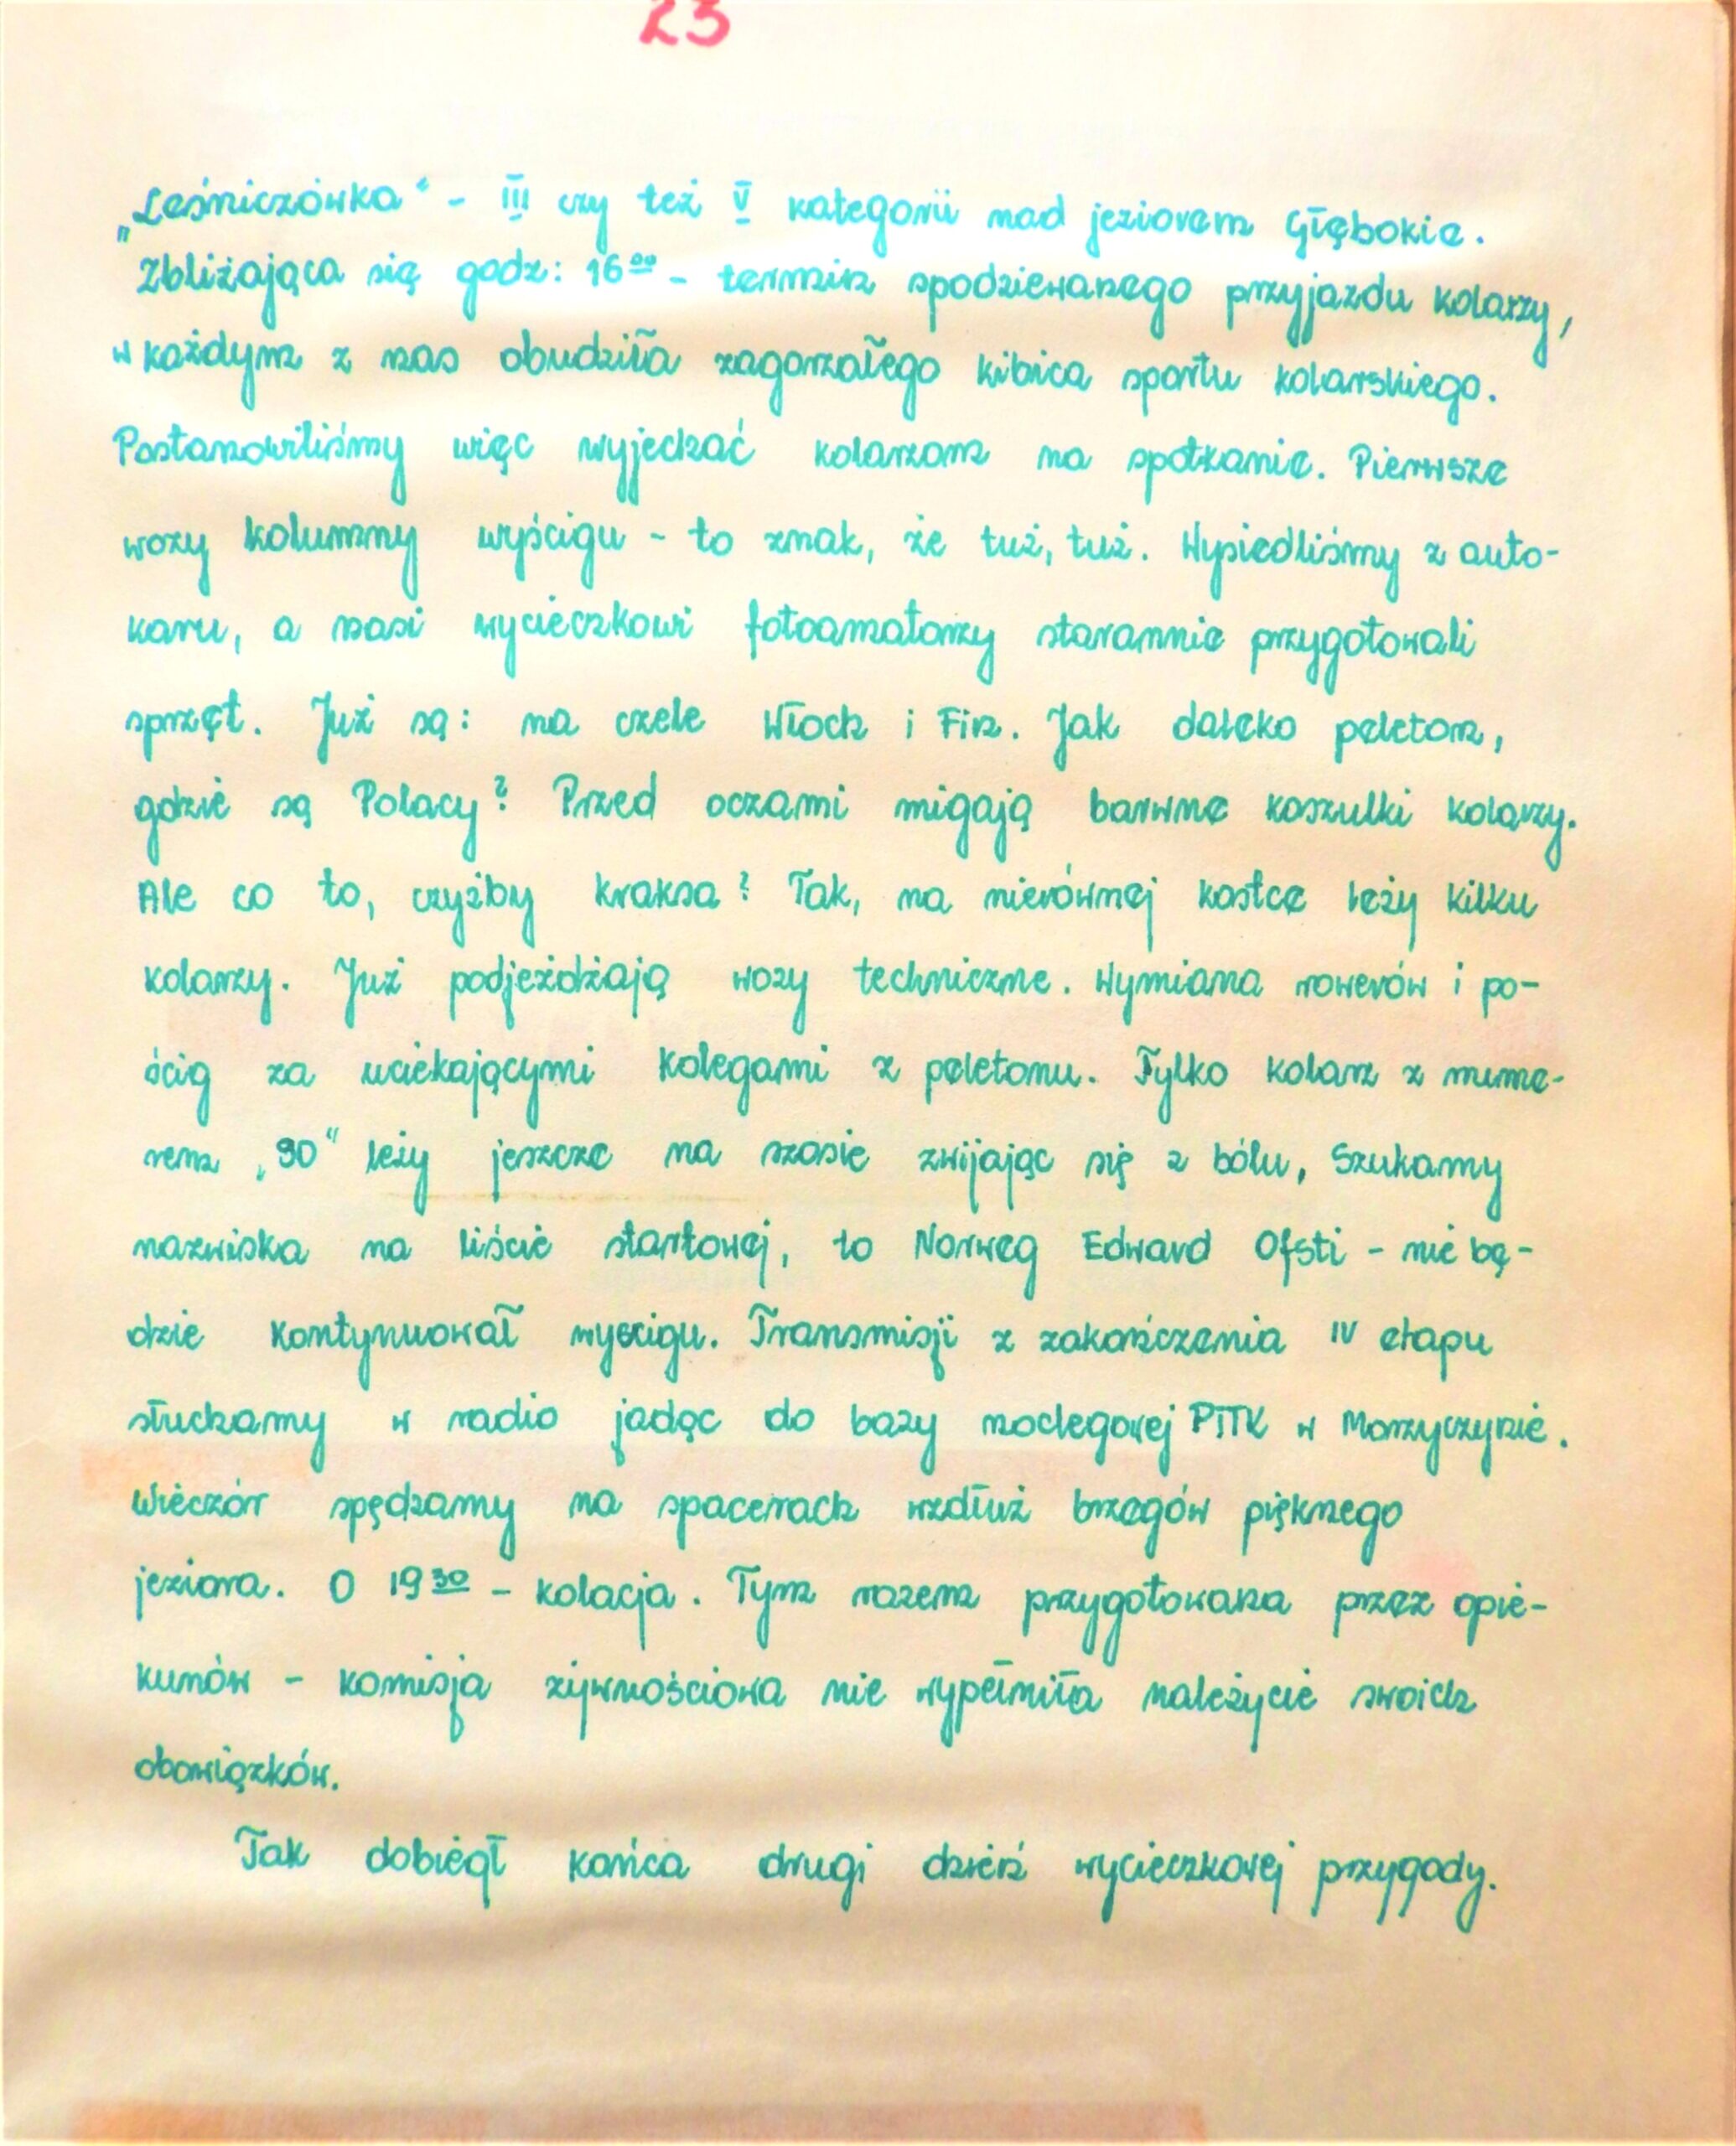 23
„Leśniczówka" - III czy też V kategorii nad jeziorem Głębokie.
Zbliżająca się godz: 16⁰⁰ - termin spodziewanego przyjazdu kolarzy,
w każdym z nas obudziła zagorzałego kibica sportu kolarskiego.
Postanowiliśmy więc wyjechać kolarzom na spotkanie. Pierwsze
wozy kolumny wyścigu - to znak, że tuż, tuż. Wysiedliśmy z auto-
karu, a nasi wycieczkowi fotoamatorzy starannie przygotowali
sprzęt. Już są: na czele Włoch i Fin. Jak daleko peleton,
gdzie są Polacy? Przed oczami migają barwne koszulki kolarzy.
Ale co to, czyżby kraksa? Tak, na nierównej kostce leży kilku
kolarzy. Już podjeżdżają wozy techniczne. Wymiana rowerów i po-
ścig za uciekającymi kolegami z peletonu. Tylko kolarz z nume-
rem „90" leży jeszcze na szosie zwijając się z bólu, Szukamy
nazwiska na liście startowej, to Norweg Edward Ofsti - nie bę-
dzie kontynuował wyścigu. Transmisji z zakończenia IV etapu
słuchamy w radio jadąc do bazy noclegowej PTTK w Morzyczynie.
Wieczór spędzamy na spacerach wzdłuż brzegów pięknego
jeziora. O 19³⁰ - kolacja. Tym razem przygotowana przez opie-
kunów - komisja żywnościowa nie wypełniła należycie swoich
obowiązków.
Tak dobiegł końca drugi dzień wycieczkowej przygody.